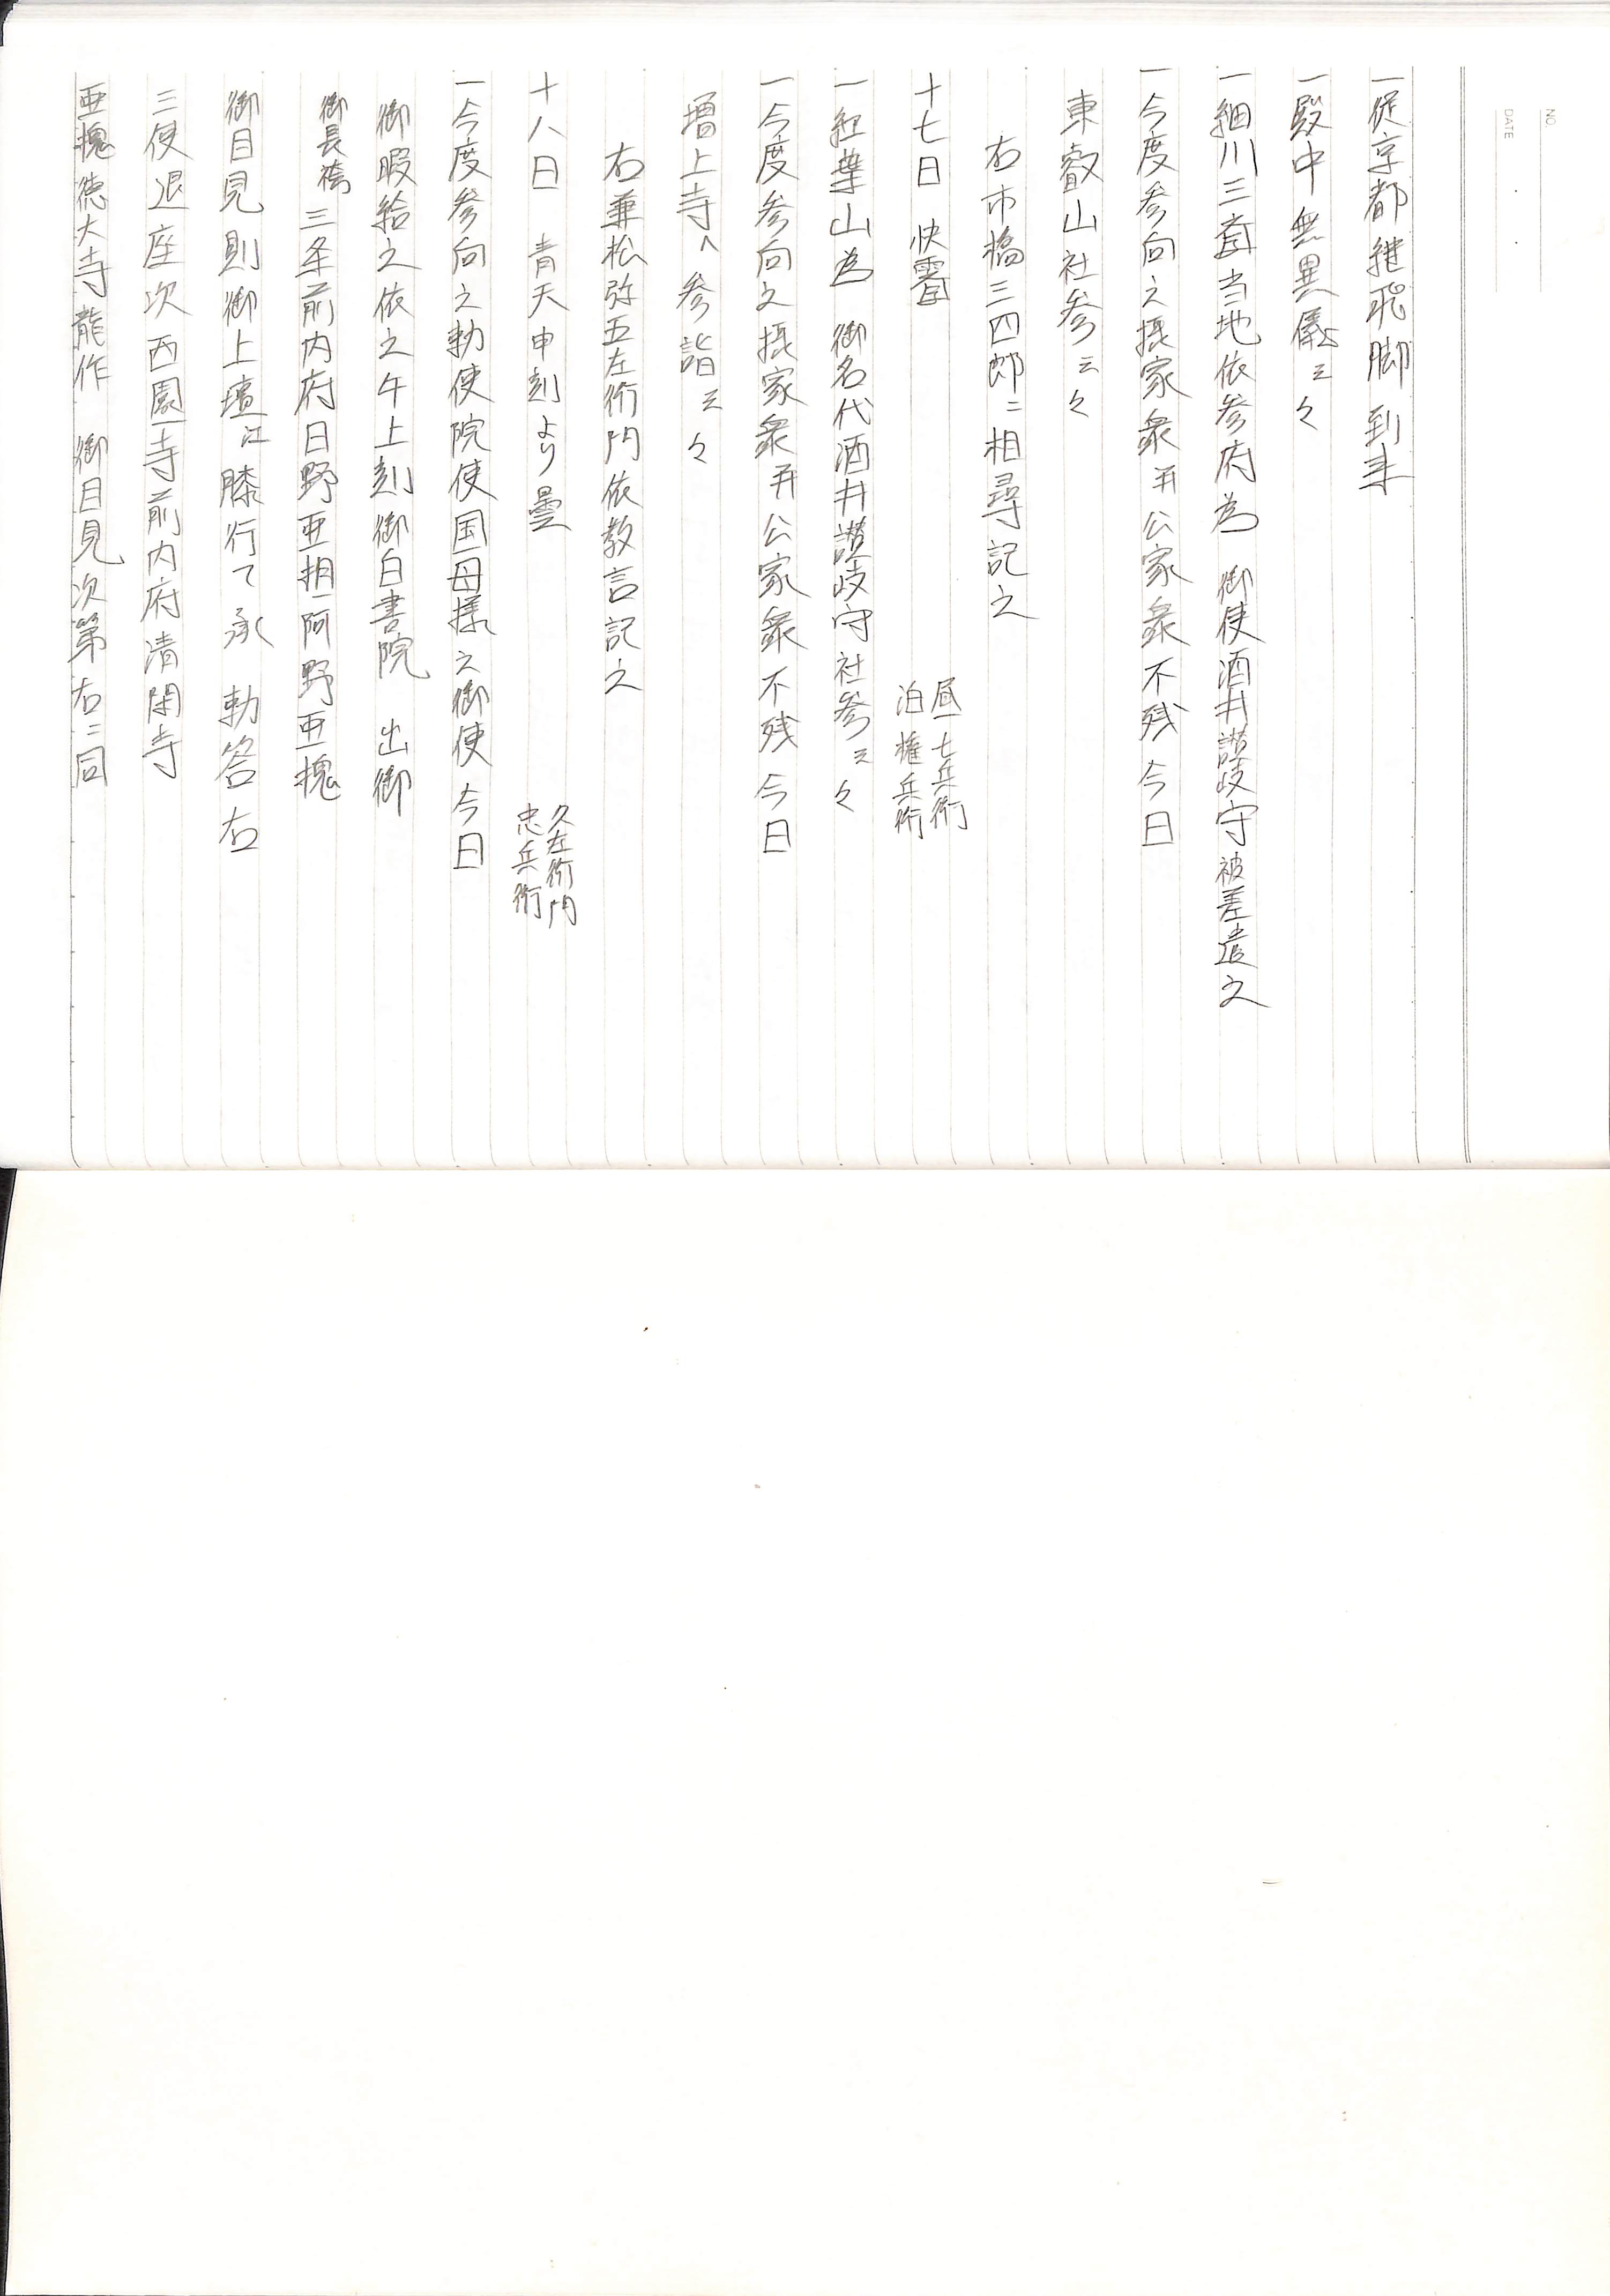 NO.
DATE
一従京都継飛脚到来
一殿中無異儀云々
一細川三斎当地依参府為 御使酒井讃岐守被差遣之
一今度参向之摂家衆并公家衆不残今日
東叡山社参云々
右市橋三四郎ニ相尋記之
十七日 快霽 昼 七兵衛
泊 権兵衛
一紅葉山為 御名代酒井讃岐守社参云々
一今度参向之摂家衆并公家衆不残今日
増上寺へ参詣云々
右兼松弥五左衛門依教言記之
十八日 青天申刻より曇 久左衛門
忠兵衛
一今度参向之勅使院使国母様之御使今日
御暇給之依之午上刻御白書院 出御
御長袴 三条前内府日野亜相阿野亜槐
御目見則御上壇江膝行て承 勅答右
三使退座次西園寺前内府清閑寺
亜槐徳大寺龍作 御目見次第右ニ同